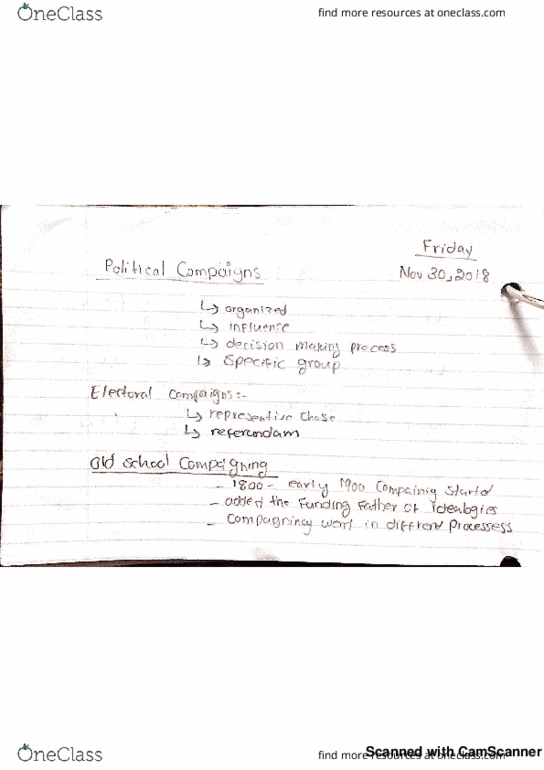 OneClass find more resources at oneclass.com
Friday
Political Compaigns Nov 30, 2018
↳ organized
↳ influence
↳ decision making process
↳ Specific group
Electoral Compaigns:-
↳ representive Chose
↳ referundam
Old School Compaigning
- 1800 - early 1900 Compainig Started
- added the Funding Father of idealogies
- Compagning went in diffrent Processess
OneClass find more resources at oneclass.com
Scanned with CamScanner